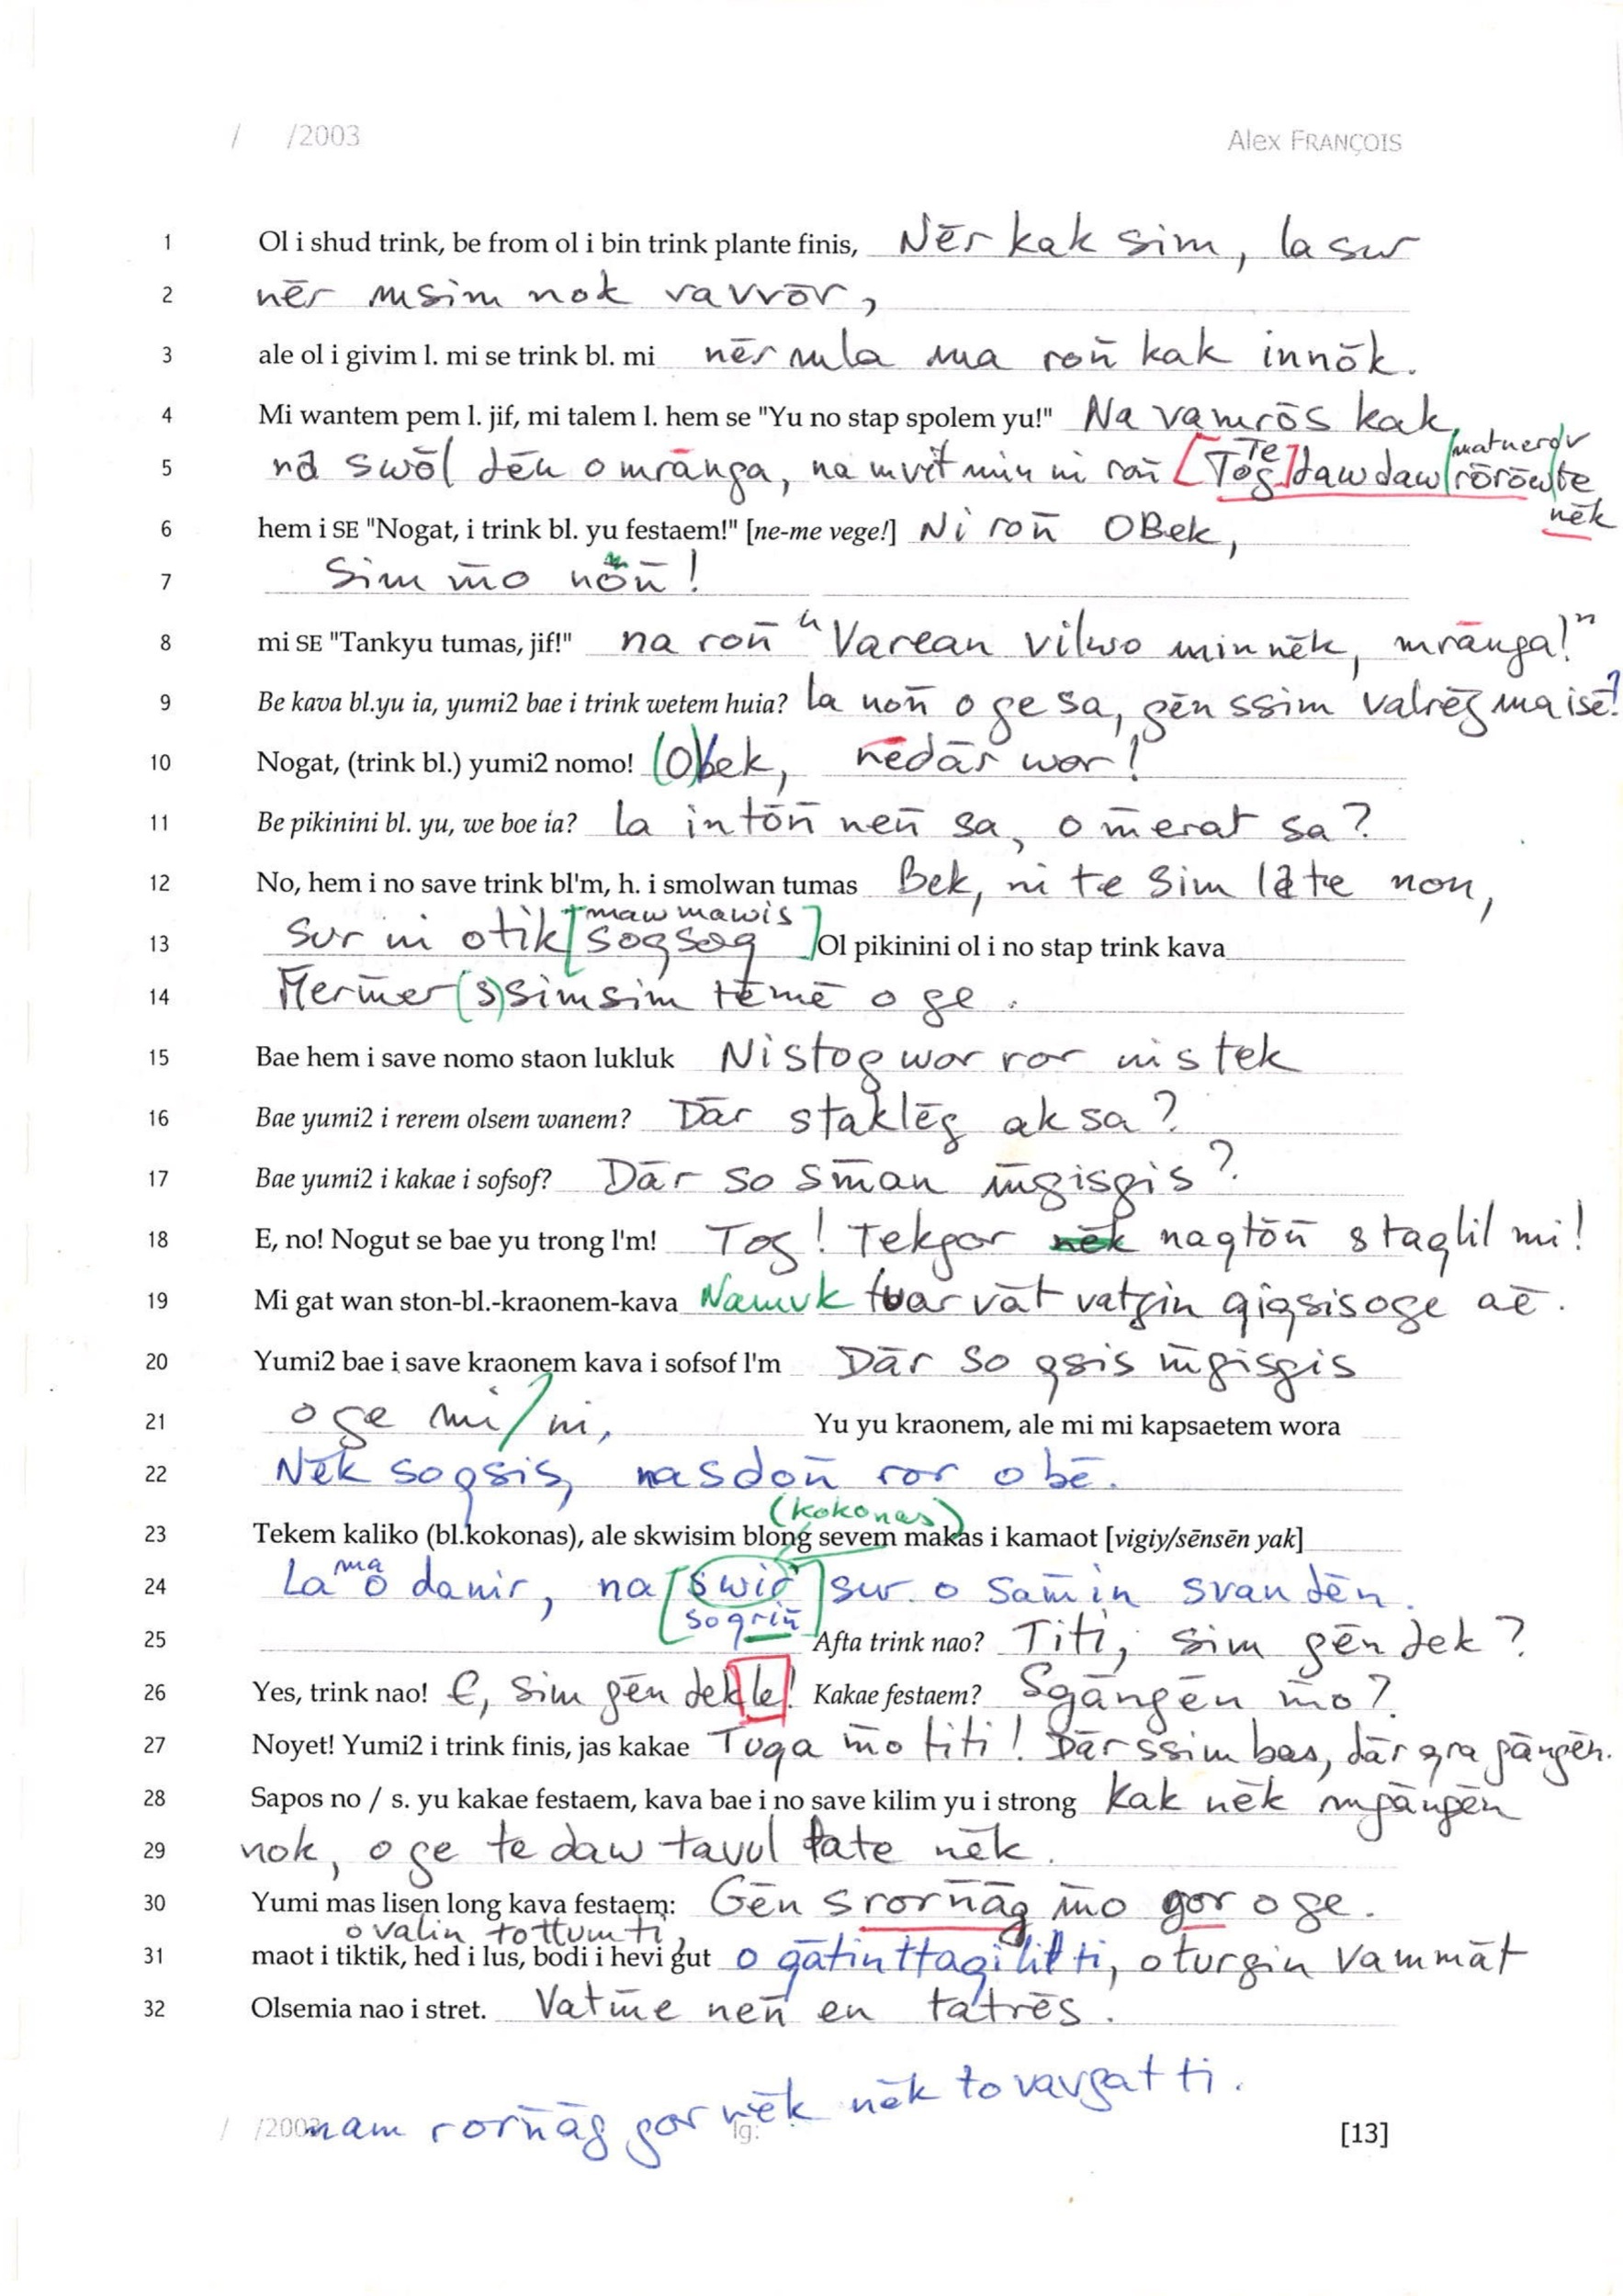 / /2003 Alex FRANÇOIS
1 Ol i shud trink, be from ol i bin trink plante finis, Nēr kak sim, la sur
2 nēr msim nok vavrōr,
3 ale ol i givim l. mi se trink bl. mi nēr mla ma ron̄ kak innōk.
4 Mi wantem pem l. jif, mi talem l. hem se "Yu no stap spolem yu!" Na vamrōs kak,
matnerōv
5 nā swōl dēn o mrānga, na mvit min ni ron̄ [Tog Te] dawdaw rōrōw te
nēk
6 hem i SE "Nogat, i trink bl. yu festaem!" [ne-me vege!] Ni ron̄ OBek,
7 Sim m̄o nōn̄!
8 mi SE "Tankyu tumas, jif!" na ron̄ "Varean vilwo min nēk, mrānga!"
9 Be kava bl.yu ia, yumi2 bae i trink wetem huia? la non̄ o ge sa, gēn ssim valrēg ma isē?
10 Nogat, (trink bl.) yumi2 nomo! (O)bek, nēdār wor!
11 Be pikinini bl. yu, we boe ia? la intōn̄ nen̄ sa, o m̄erat sa?
12 No, hem i no save trink bl'm, h. i smolwan tumas Bek, ni te sim late non,
mawmawis
13 sur ni otik [soqsoq] Ol pikinini ol i no stap trink kava
14 M̄erm̄er (s)simsim tēmē o ge.
15 Bae hem i save nomo staon lukluk Ni stog wor ror ni s tek
16 Bae yumi2 i rerem olsem wanem? Dār staklēg ak sa?
17 Bae yumi2 i kakae i sofsof? Dār so sm̄an m̄gisgis?
18 E, no! Nogut se bae yu trong l'm! Tog! Tekgor nagtōn̄ staqlil mi!
19 Mi gat wan ston-bl.-kraonem-kava Namuk tuar vāt vatgin qiqsis oge aē.
20 Yumi2 bae i save kraonem kava i sofsof l'm Dār so qsis m̄gisgis
21 o ge mi/ni, Yu yu kraonem, ale mi mi kapsaetem wora
22 Nēk soqsis, nasdon̄ ror o bē.
(kokonas)
23 Tekem kaliko (bl.kokonas), ale skwisim blong sevem makas i kamaot [vigiy/sēnsēn yak]
24 La ma o danir, na [swir] sur o sam̄in svan dēn.
soqrin̄
25 Afta trink nao? Titi, sim gēn dek?
26 Yes, trink nao! E, sim gēn dek le! Kakae festaem? Sgāngēn m̄o?
27 Noyet! Yumi2 i trink finis, jas kakae Tuga m̄o titi! Dār ssim bas, dār qra gāngēn.
28 Sapos no / s. yu kakae festaem, kava bae i no save kilim yu i strong Kak nēk mgāngēn
29 nok, o ge te daw tavul tate nēk.
30 Yumi mas lisen long kava festaem: Gēn srorn̄āg m̄o gor o ge.
o valin tottum ti,
31 maot i tiktik, hed i lus, bodi i hevi gut o qātin ttaqilil ti, o turgin vammāt
32 Olsemia nao i stret. Vatm̄e nen̄ en tatrēs.
nam rorn̄āg gor nēk nēk to vavgat ti.
/ /2003 lg: [13]